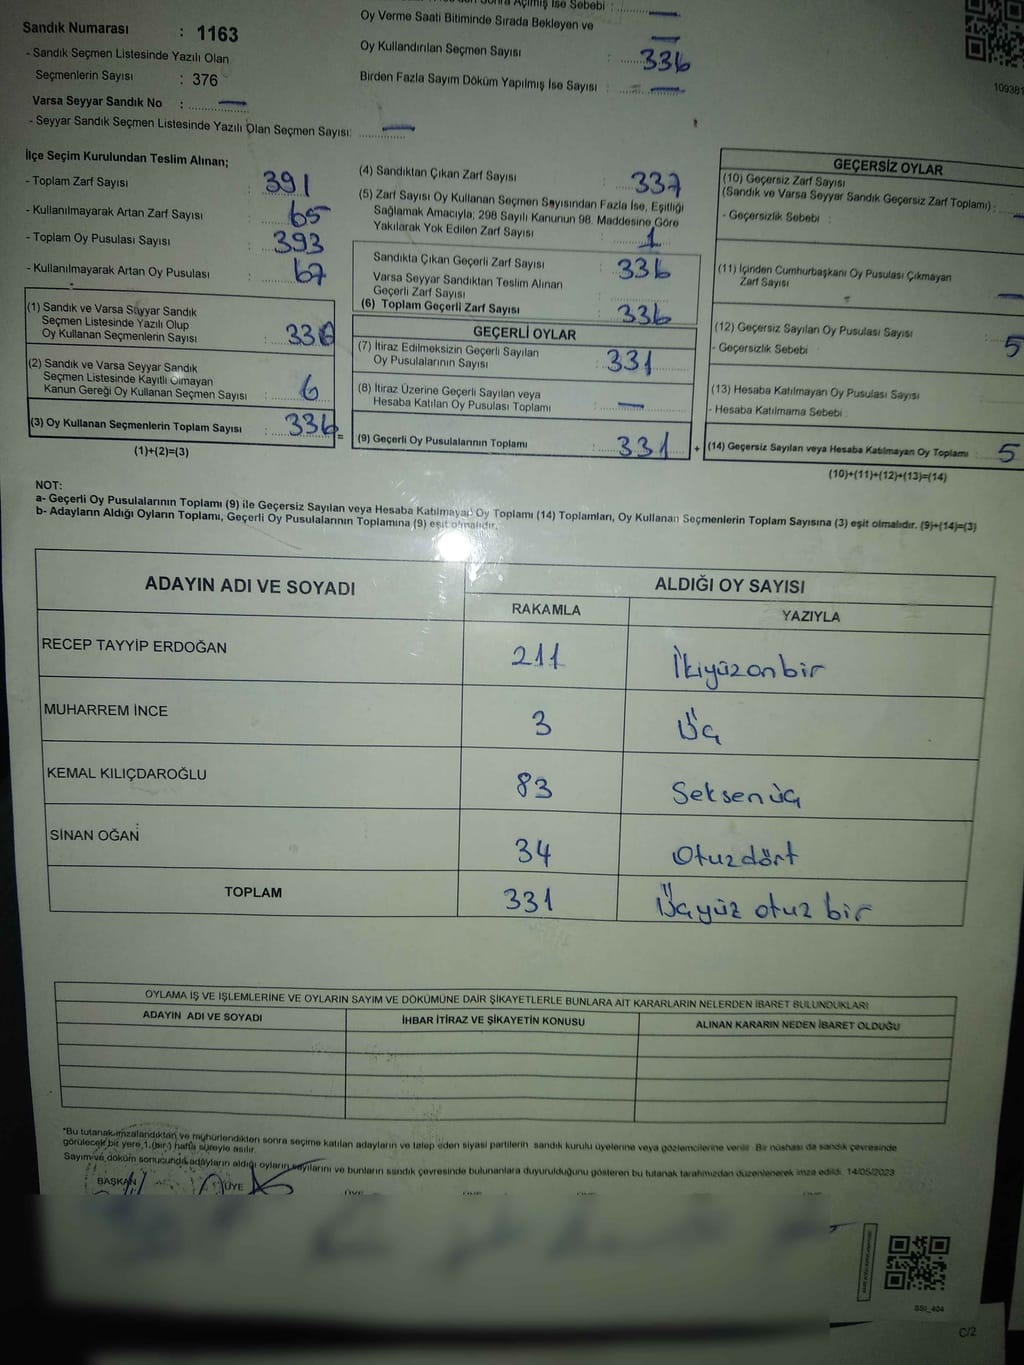 Sandık Numarası : 1163
- Sandık Seçmen Listesinde Yazılı Olan
Seçmenlerin Sayısı : 376
Varsa Seyyar Sandık No : —
- Seyyar Sandık Seçmen Listesinde Yazılı Olan Seçmen Sayısı: —
Açılmış İse Sebebi : —
Oy Verme Saati Bitiminde Sırada Bekleyen ve
Oy Kullandırılan Seçmen Sayısı : 336
Birden Fazla Sayım Döküm Yapılmış İse Sayısı : —
109381
İlçe Seçim Kurulundan Teslim Alınan;
- Toplam Zarf Sayısı : 391
- Kullanılmayarak Artan Zarf Sayısı : 65
- Toplam Oy Pusulası Sayısı : 393
- Kullanılmayarak Artan Oy Pusulası : 67
(1) Sandık ve Varsa Seyyar Sandık
Seçmen Listesinde Yazılı Olup
Oy Kullanan Seçmenlerin Sayısı : 336
(2) Sandık ve Varsa Seyyar Sandık
Seçmen Listesinde Kayıtlı Olmayan
Kanun Gereği Oy Kullanan Seçmen Sayısı : 6
(3) Oy Kullanan Seçmenlerin Toplam Sayısı : 336 =
(1)+(2)=(3)
(4) Sandıktan Çıkan Zarf Sayısı : 337
(5) Zarf Sayısı Oy Kullanan Seçmen Sayısından Fazla İse, Eşitliği
Sağlamak Amacıyla; 298 Sayılı Kanunun 98. Maddesine Göre
Yakılarak Yok Edilen Zarf Sayısı : 1
Sandıkta Çıkan Geçerli Zarf Sayısı : 336
Varsa Seyyar Sandıktan Teslim Alınan
Geçerli Zarf Sayısı :
(6) Toplam Geçerli Zarf Sayısı : 336
GEÇERLİ OYLAR
(7) İtiraz Edilmeksizin Geçerli Sayılan
Oy Pusulalarının Sayısı : 331
(8) İtiraz Üzerine Geçerli Sayılan veya
Hesaba Katılan Oy Pusulası Toplamı : —
(9) Geçerli Oy Pusulalarının Toplamı : 331 +
GEÇERSİZ OYLAR
(10) Geçersiz Zarf Sayısı
(Sandık ve Varsa Seyyar Sandık Geçersiz Zarf Toplamı) : —
- Geçersizlik Sebebi :
(11) İçinden Cumhurbaşkanı Oy Pusulası Çıkmayan
Zarf Sayısı : —
(12) Geçersiz Sayılan Oy Pusulası Sayısı : 5
- Geçersizlik Sebebi :
(13) Hesaba Katılmayan Oy Pusulası Sayısı :
- Hesaba Katılmama Sebebi :
(14) Geçersiz Sayılan veya Hesaba Katılmayan Oy Toplamı : 5
(10)+(11)+(12)+(13)=(14)
NOT:
a- Geçerli Oy Pusulalarının Toplamı (9) ile Geçersiz Sayılan veya Hesaba Katılmayan Oy Toplamı (14) Toplamları, Oy Kullanan Seçmenlerin Toplam Sayısına (3) eşit olmalıdır. (9)+(14)=(3)
b- Adayların Aldığı Oyların Toplamı, Geçerli Oy Pusulalarının Toplamına (9) eşit olmalıdır.
ADAYIN ADI VE SOYADI
ALDIĞI OY SAYISI
RAKAMLA YAZIYLA
RECEP TAYYİP ERDOĞAN 211 İkiyüzonbir
MUHARREM İNCE 3 Üç
KEMAL KILIÇDAROĞLU 83 Seksenüç
SİNAN OĞAN 34 Otuzdört
TOPLAM 331 Üçyüz otuz bir
OYLAMA İŞ VE İŞLEMLERİNE VE OYLARIN SAYIM VE DÖKÜMÜNE DAİR ŞİKAYETLERLE BUNLARA AİT KARARLARIN NELERDEN İBARET BULUNDUKLARI
ADAYIN ADI VE SOYADI İHBAR İTİRAZ VE ŞİKAYETİN KONUSU ALINAN KARARIN NEDEN İBARET OLDUĞU
*Bu tutanak imzalandıktan ve mühürlendikten sonra seçime katılan adayların ve talep eden siyasi partilerin sandık kurulu üyelerine veya gözlemcilerine verilir. Bir nüshası da sandık çevresinde
görülecek bir yere 1 (bir) hafta süreyle asılır.
Sayım ve döküm sonucunda adayların aldığı oyların sayılarını ve bunların sandık çevresinde bulunanlara duyurulduğunu gösteren bu tutanak tarafımızdan düzenlenerek imza edildi. 14/05/2023
BAŞKAN ÜYE
SSI_404
C/2